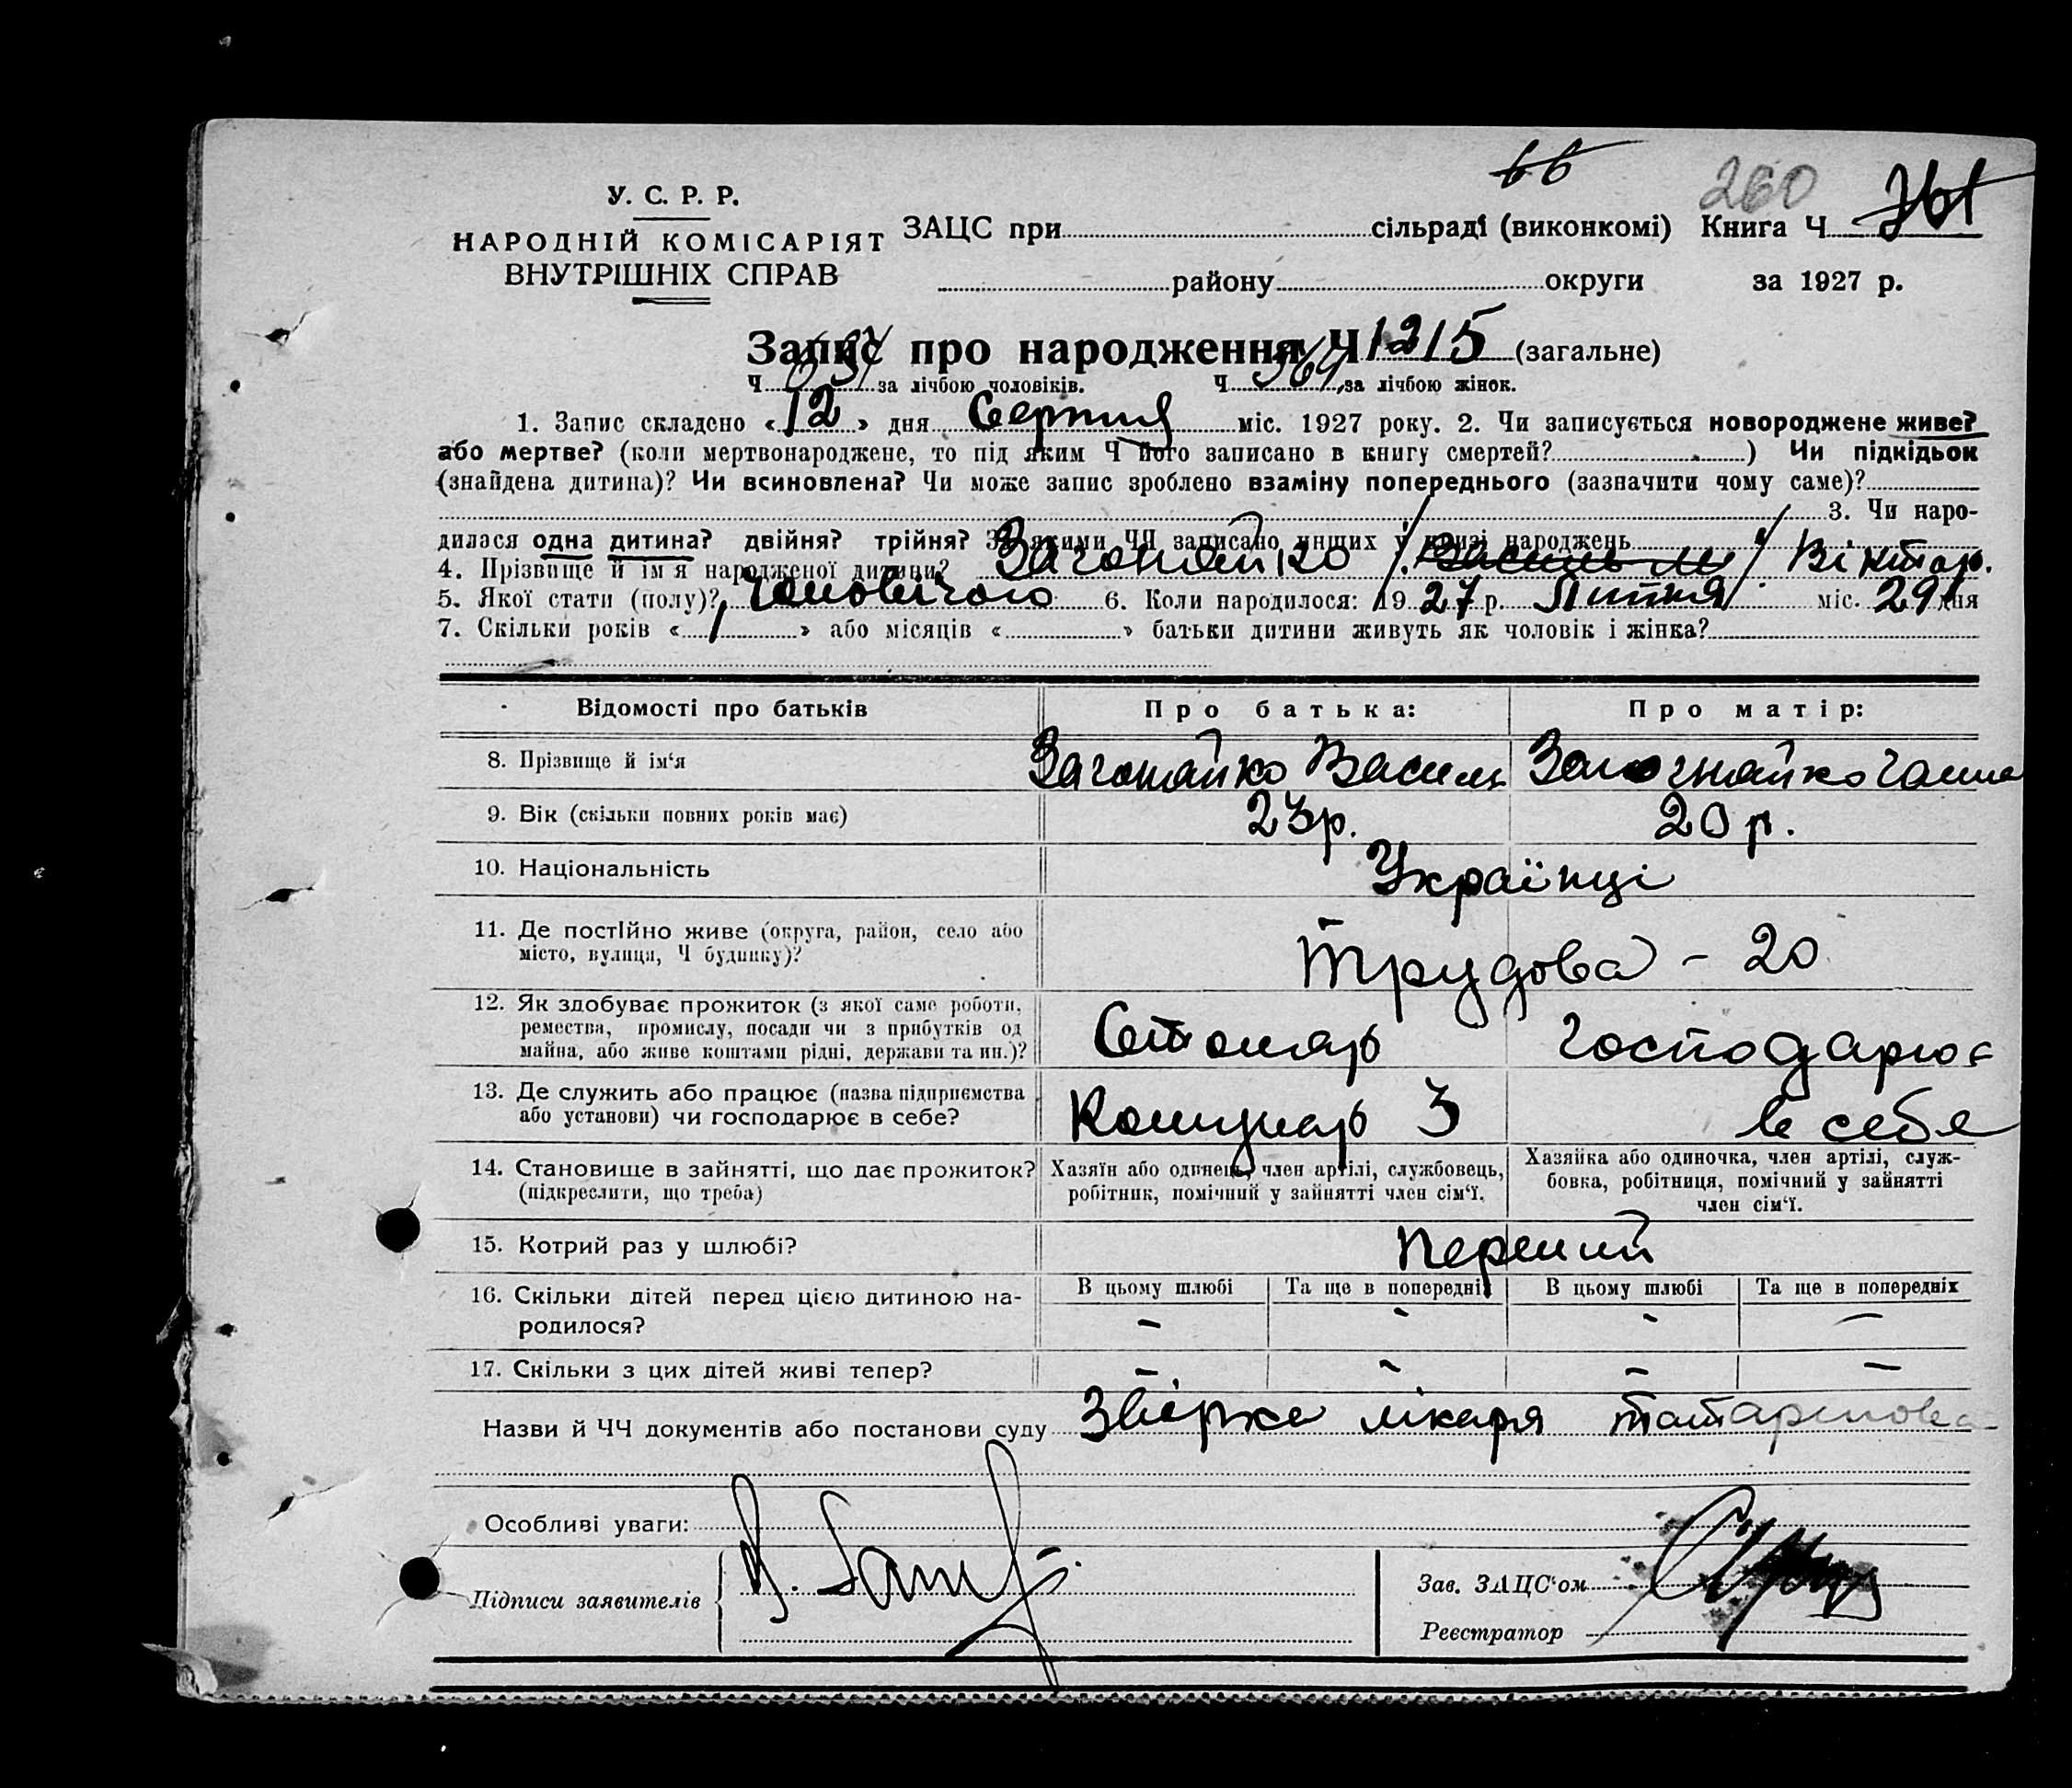 66
260 761
У. С. Р. Р.
НАРОДНІЙ КОМІСАРІЯТ
ВНУТРІШНІХ СПРАВ
ЗАЦС при сільраді (виконкомі) Книга Ч
району округи за 1927 р.
Запис про народження Ч 1215 (загальне)
Ч за лічбою чоловіків. Ч 564 за лічбою жінок.
1. Запис складено «12» дня Серпня міс. 1927 року. 2. Чи записується новороджене живе?
або мертве? (коли мертвонароджене, то під яким Ч його записано в книгу смертей? ) Чи підкідьок
(знайдена дитина)? Чи всиновлена? Чи може запис зроблено взаміну попереднього (зазначити чому саме)?
3. Чи наро-
дилася одна дитина? двійня? трійня? За якими ЧЧ записано инших у книзі народжень
4. Прізвище й ім'я народженої дитини? Загонайко Віктор.
5. Якої стати (полу)? чоловічого 6. Коли народилося: 1927 р. Липня міс. 29 дня
7. Скільки років «1» або місяців « » батьки дитини живуть як чоловік і жінка?
Відомості про батьків Про батька: Про матір:
8. Прізвище й ім'я Загонайко Василь Загонайко Ганна
9. Вік (скільки повних років має) 23р. 20 р.
10. Національність Українці
11. Де постійно живе (округа, район, село або
місто, вулиця, Ч будинку)? Трудова - 20
12. Як здобуває прожиток (з якої саме роботи,
ремества, промислу, посади чи з прибутків од
майна, або живе коштами рідні, держави та ин.)? Столяр Господарює
13. Де служить або працює (назва підприємства
або установи) чи господарює в себе? в себе
14. Становище в зайнятті, що дає прожиток?
(підкреслити, що треба)
Хазяїн або одинець, член артілі, службовець,
робітник, помічний у зайнятті член сім'ї.
Хазяйка або одиночка, член артілі, служ-
бовка, робітниця, помічний у зайнятті
член сім'ї.
15. Котрий раз у шлюбі? Перший
16. Скільки дітей перед цією дитиною на-
родилося?
В цьому шлюбі Та ще в попередніх В цьому шлюбі Та ще в попередніх
- - - -
17. Скільки з цих дітей живі тепер? - - - -
Назви й ЧЧ документів або постанови суду лікаря Татаринова
Особливі уваги:
Підписи заявителів
Зав. ЗАЦС'ом
Реєстратор